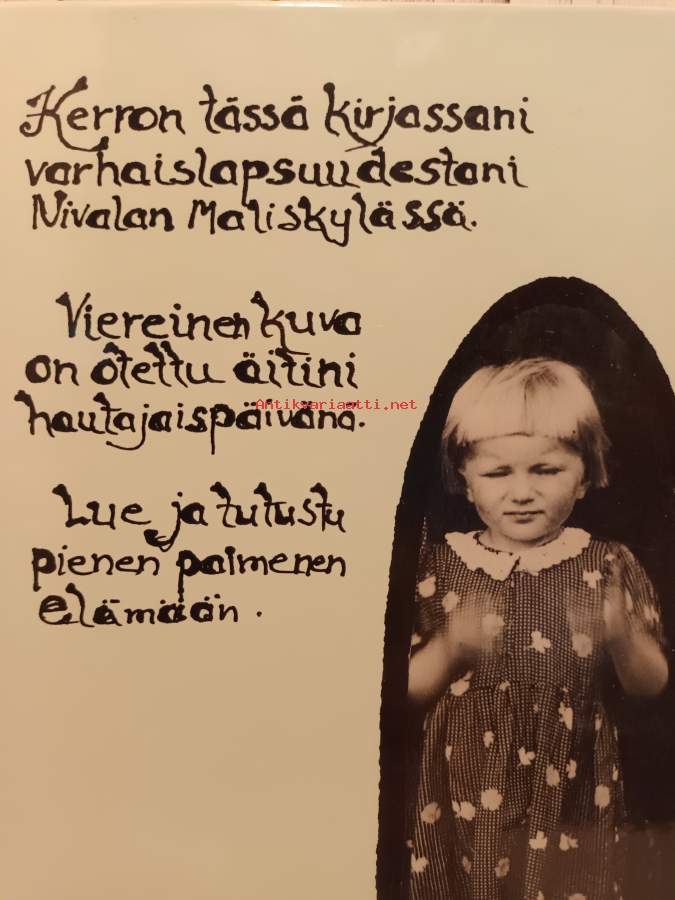 Kerron tässä kirjassani
varhaislapsuudestani
Nivalan Maliskylässä.
Viereinen kuva
on otettu äitini
hautajaispäivänä.
Antikvariaatti.net
Lue ja tutustu
pienen paimenen
elämään.